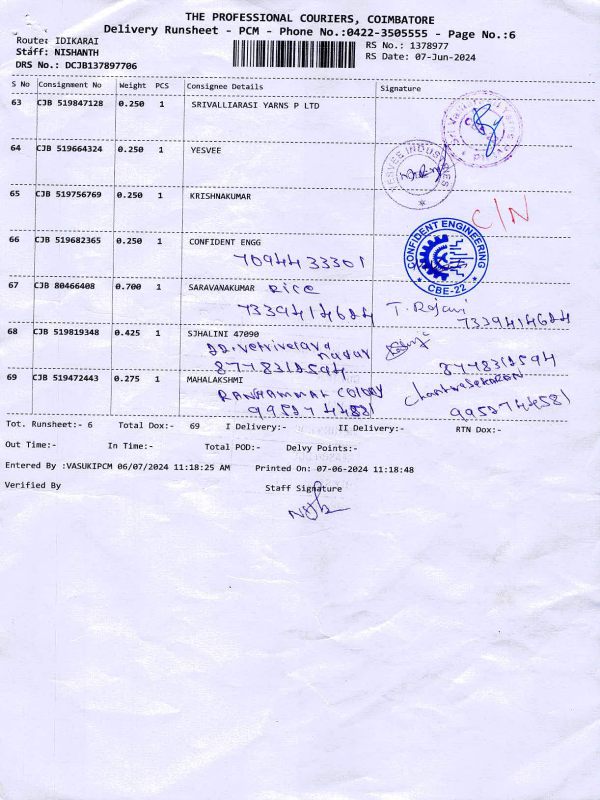 THE PROFESSIONAL COURIERS, COIMBATORE
Delivery Runsheet - PCM - Phone No.:0422-3505555 - Page No.:6
Route: IDIKARAI
RS No.: 1378977
Staff: NISHANTH
RS Date: 07-Jun-2024
DRS No.: DCJB137897706
S No Consignment No Weight PCS Consignee Details Signature
63 CJB 519847128 0.250 1 SRIVALLIARASI YARNS P LTD
64 CJB 519664324 0.250 1 YESVEE
YESVEE INDUSTRIES
65 CJB 519756769 0.250 1 KRISHNAKUMAR
C/N
66 CJB 519682365 0.250 1 CONFIDENT ENGG
7094433301
CONFIDENT ENGINEERING
CBE-22
67 CJB 80466408 0.700 1 SARAVANAKUMAR Rice
7339414624 T. Rajani 7339414624
68 CJB 519819348 0.425 1 SJHALINI 47090
22. vetrivelava nagar
8778312594 8778312594
69 CJB 519472443 0.275 1 MAHALAKSHMI
COLONY
9952744581 9952744581
Tot. Runsheet:- 6 Total Dox:- 69 I Delivery:- II Delivery:- RTN Dox:-
Out Time:- In Time:- Total POD:- Delvy Points:-
Entered By :VASUKIPCM 06/07/2024 11:18:25 AM Printed On: 07-06-2024 11:18:48
Verified By Staff Signature